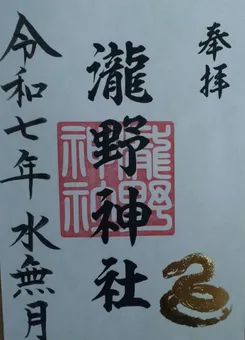 奉拝
瀧野神社
瀧野神社
令和七年 水無月